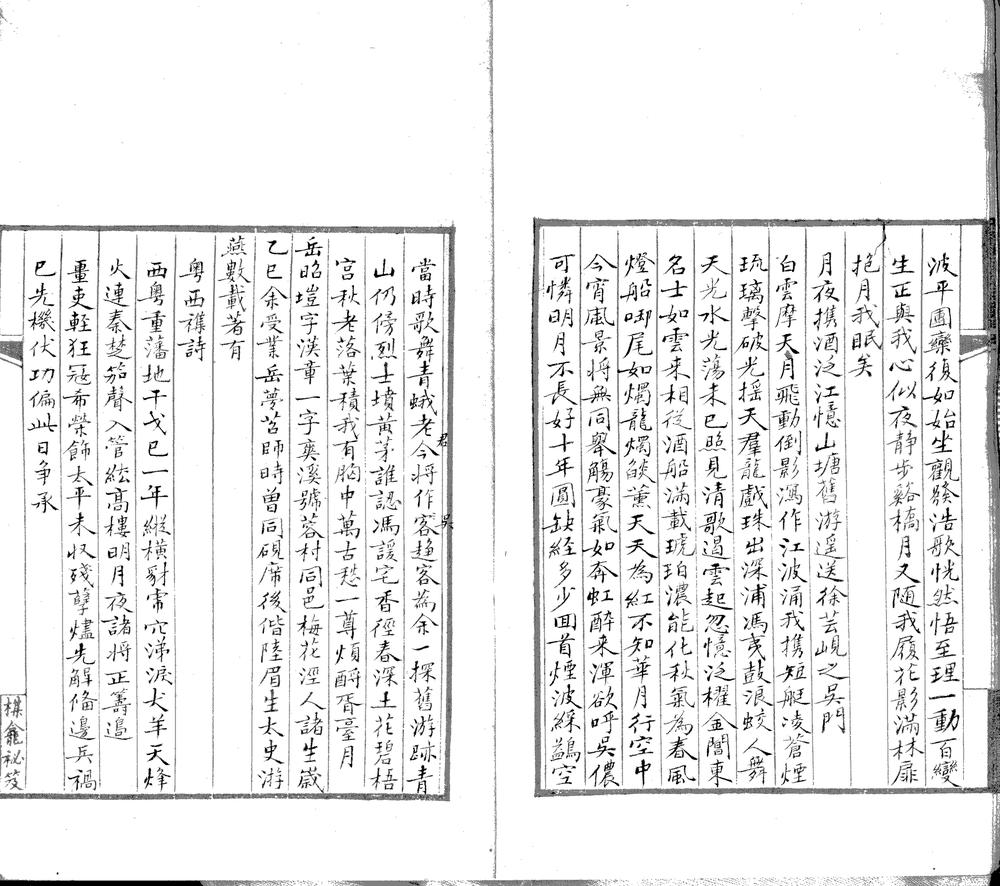 波平圓欒復如始坐觀發浩歌恍然悟至理一動百變
生正與我心似夜静步谿橋月又随我履花影滿林扉
抱月我眠矣
月夜携酒泛江憶山塘舊游遥送徐芸峴之吳門
白雲摩天月飛動倒影瀉作江波涌我携短艇凌蒼煙
琉璃擊破光摇天羣龍戲珠出深浦馮夷鼓浪蛟人舞
天光水光蕩未已照見清歌遏雲起忽憶泛櫂金閶東
名士如雲来相從酒船滿載琥珀濃能化秋氣為春風
燈船啣尾如燭龍燭燄薰天天為紅不知華月行空中
今宵風景将無同舉觴豪氣如奔虹醉来渾欲呼吳儂
可憐明月不長好十年圓缺経多少囬首煙波綵鷁空
當時歌舞青蛾老今将作客趋客為余一探舊游跡青
君 吳
山仍傍烈士墳黄茅誰認馮諼宅香徑春深土花碧梧
宫秋老落葉積我有胸中萬古愁一尊煩酹胥臺月
岳昭塏字漢章一字奭溪號蓉村同邑梅花涇人諸生歲
乙巳余受業岳夢苕師時曾同硯席後偕陸眉生太史游
燕數載著有
粤西襍詩
西粤重藩地干戈已一年縱横豺虎穴涕淚犬羊天烽
火連秦楚笳聲入管絃髙樓明月夜諸将正籌邉
畺吏輕狂冦希榮飾太平未収殘孽燼先解偹邊兵禍
已先機伏功偏此日争承
棋龕祕笈